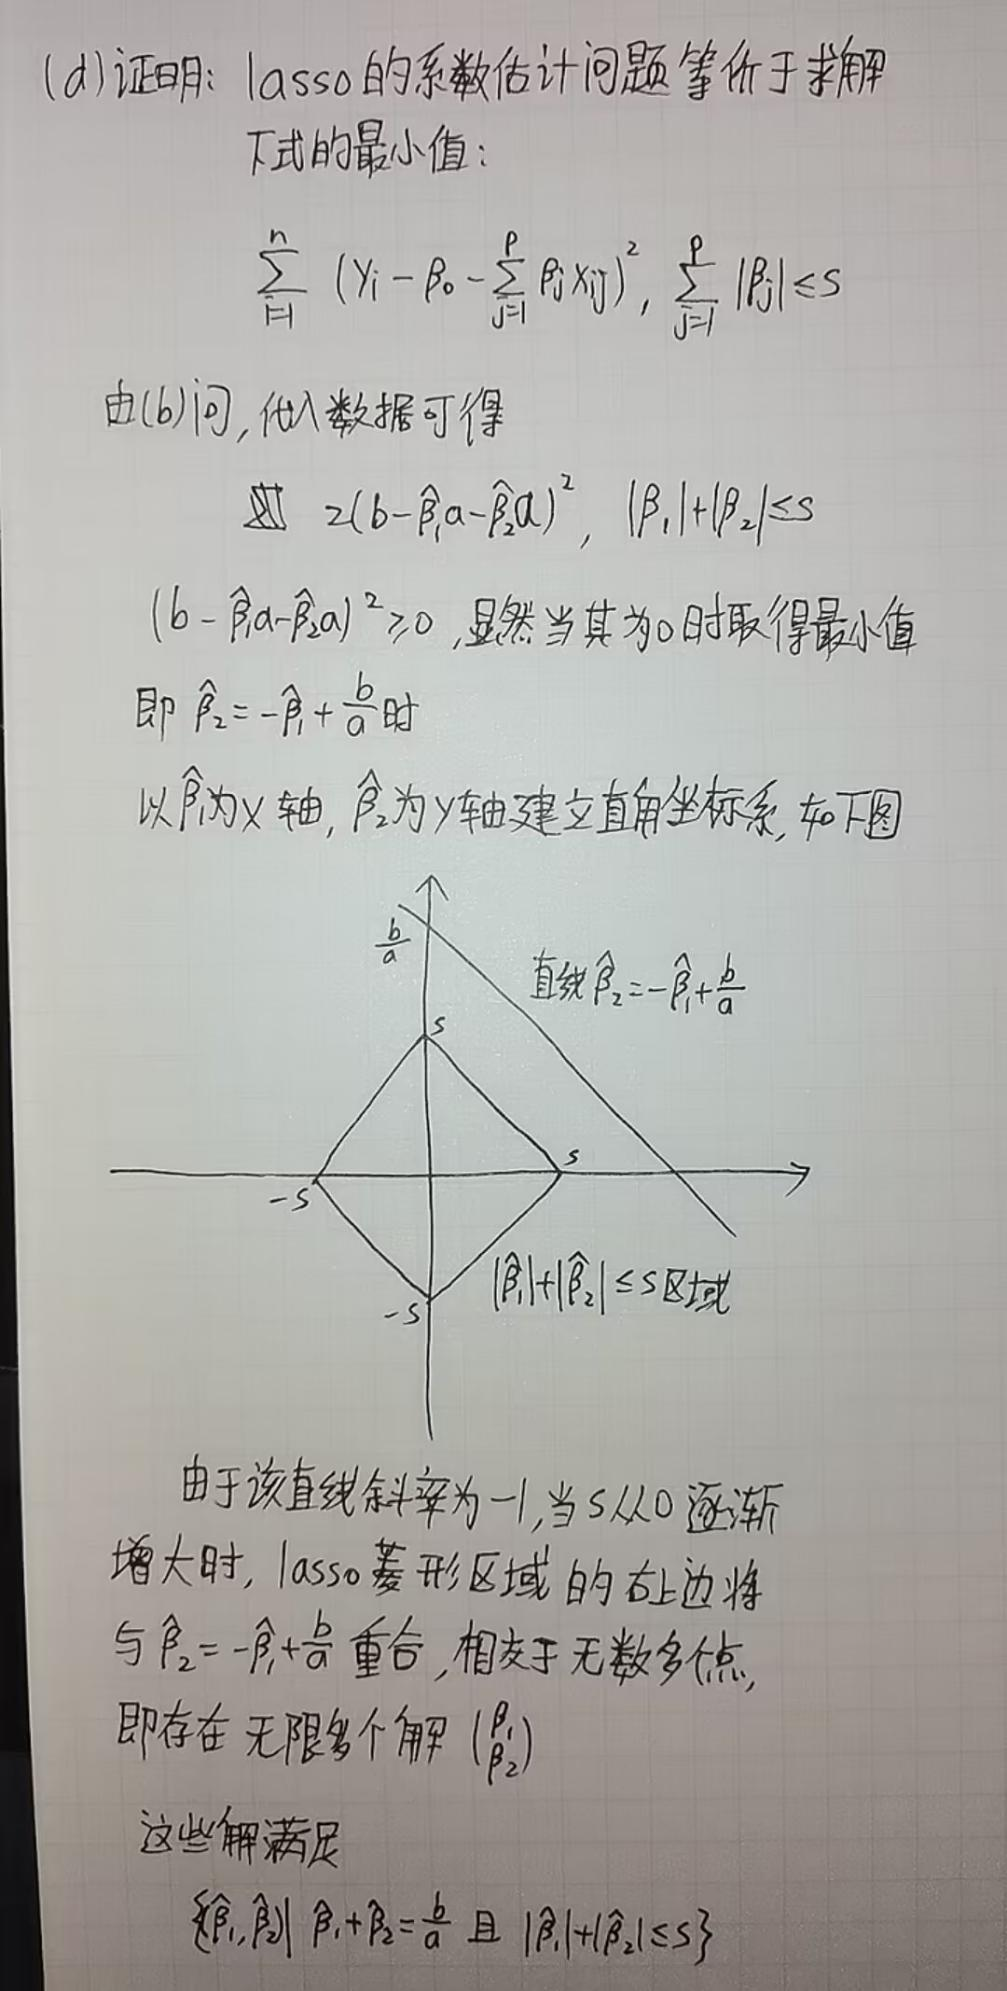 (d)证明: lasso的系数估计问题等价于求解
下式的最小值:
\sum_{i=1}^{n} (y_i - β_0 - \sum_{j=1}^{p} β_j x_{ij})^2, \sum_{j=1}^{p} |β_j| ≤ s
由(b)问,代入数据可得
2(b-β̂_1a-β̂_2a)^2, |β_1|+|β_2|≤s
(b-β̂_1a-β̂_2a)^2≥0,显然当其为0时取得最小值
即 β̂_2=-β̂_1+\frac{b}{a}时
以β̂_1为x轴,β̂_2为y轴建立直角坐标系,如下图
\frac{b}{a}
直线β̂_2=-β̂_1+\frac{b}{a}
s
s
-s
-s
|β̂_1|+|β̂_2|≤s区域
由于该直线斜率为-1,当s从0逐渐
增大时,lasso菱形区域的右上边将
与β̂_2=-β̂_1+\frac{b}{a}重合,相交于无数多个点,
即存在无限多个解(β_1 β_2)
这些解满足
{(β̂_1,β̂_2)| β̂_1+β̂_2=\frac{b}{a} 且 |β̂_1|+|β̂_2|≤s}